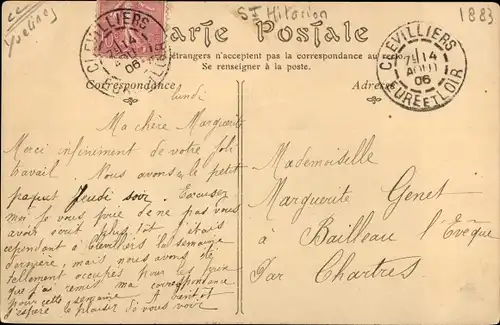 St Hilarion
1883
Yvelines
Carte Postale
étrangers n'acceptent pas la correspondance au
Se renseigner à la poste.
Correspondance
Adresse
CLEVILLIERS
14
AOUT
06
EURE ET LOIR
CLEVILLIERS
14
AOUT
06
EURE ET LOIR
lundi
Ma chère Marguerite
Merci infiniment de votre joli
travail. Nous avons le petit
paquet Jeudi soir. Excusez
moi je vous prie de ne pas vous
avoir écrit plus tôt j'étais
cependant à Clévilliers la semaine
dernière, mais nous avons été
tellement occupés pour les prix
que j'ai remis ma correspondance
pour cette semaine A bientôt
j'espère le plaisir de vous voir
Mademoiselle
Marguerite Genet
à Bailleau l'Evêque
Par Chartres